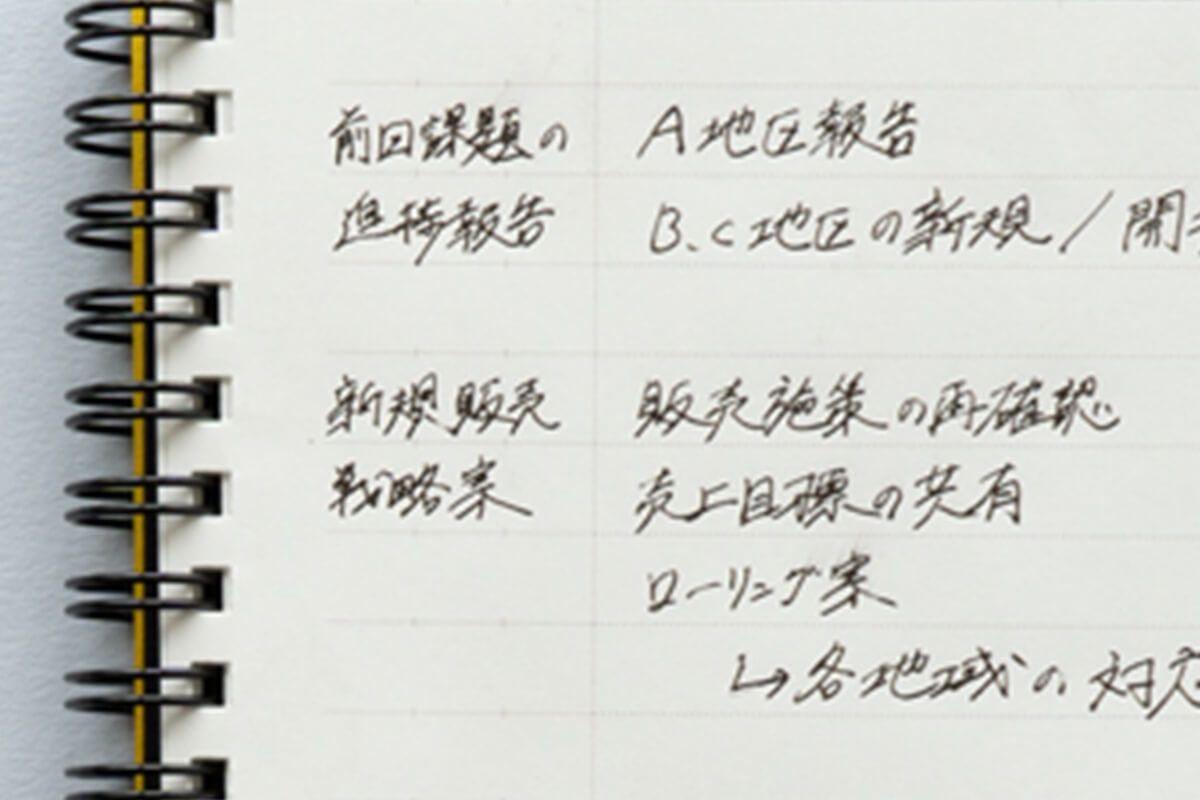 前回課題の A地区報告
進捗報告 B、C地区の新規／開
新規販売 販売施策の再確認
戦略案 売上目標の共有
ローリング案
↳各地域の対応